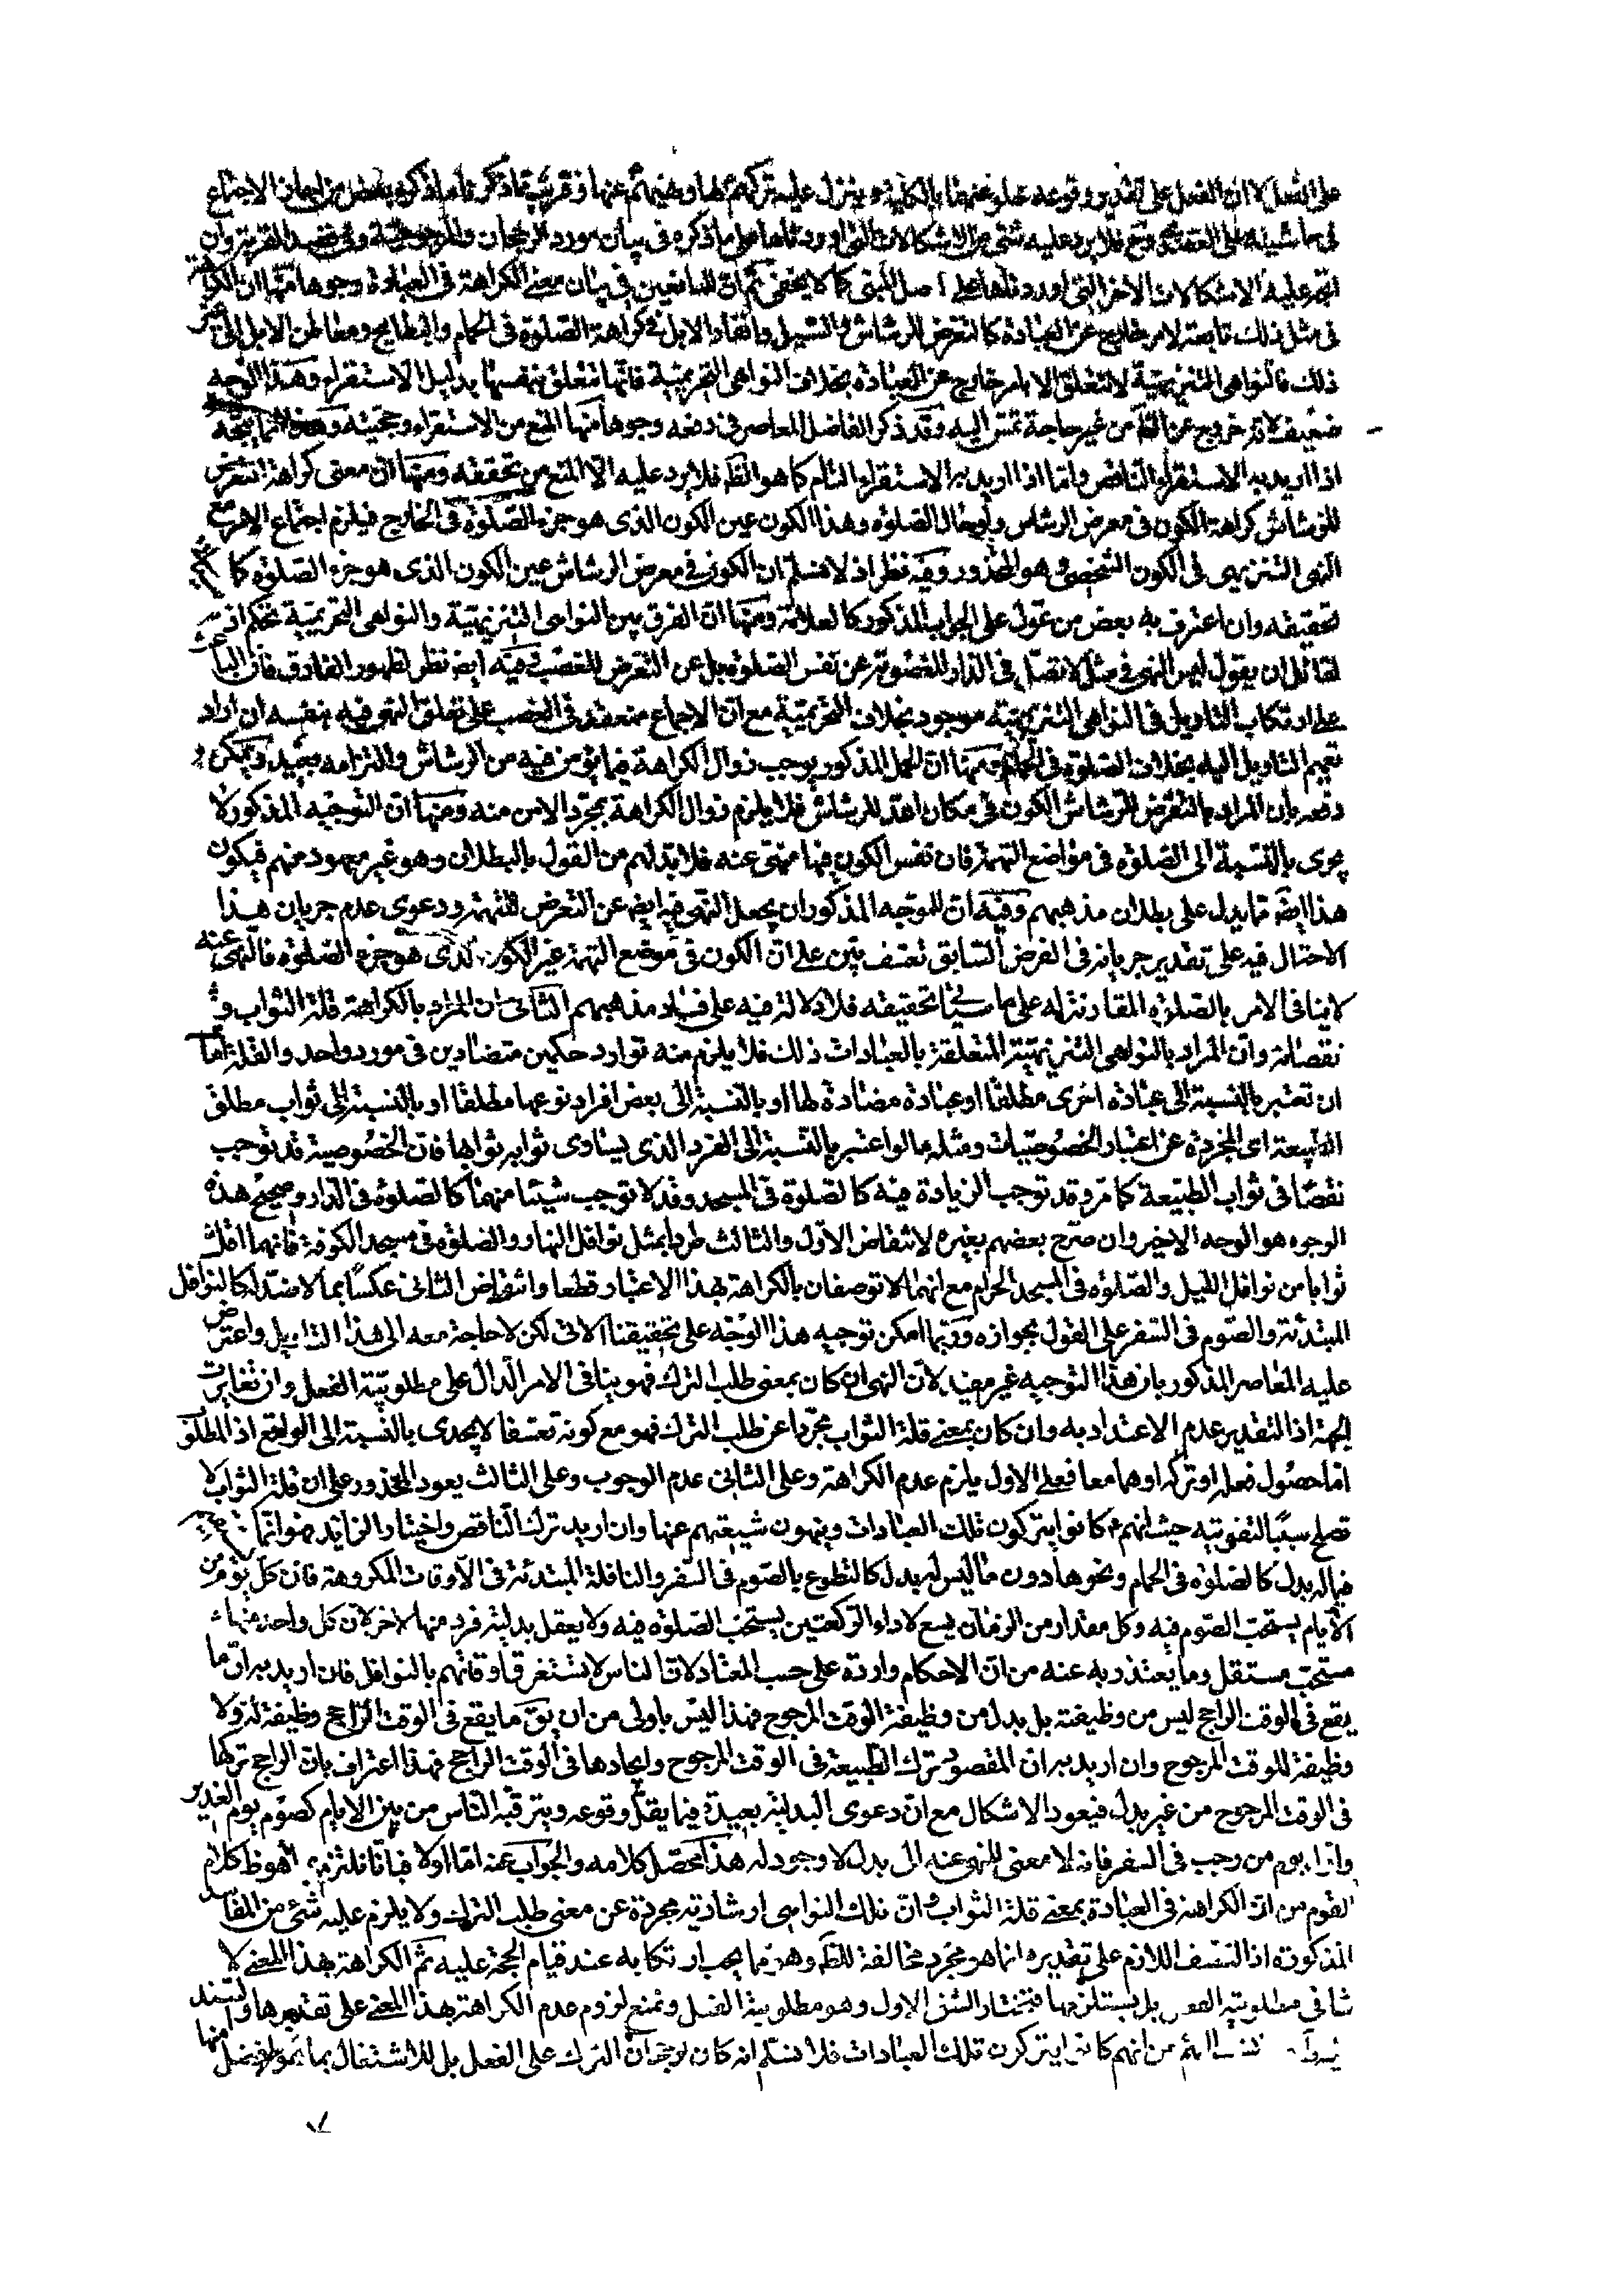 على الفعل لا ان الفعل على تقدير وقوعه خلو عنهما بالكلية وينزل عليه تركهم لها ونهيهم عنها وقريب مما ذكرنا ما ذكره بعض من اجاز الاجتماع
في حاشيته على العضدي وح فلا يرد عليه شئ من الاشكالات التى اوردناها على ما ذكره في بيان مورد الرجحان والمرجوحية وان
اتجه عليه الاشكالات الاخر التى اوردناها على اصل المبنى كما لا يخفى ثم ان للمانعين في بيان معنى الكراهة في العبادة وجوها منها ان الكراهة
في مثل ذلك تابعة لامر خارج عن العبادة كالتعرض للرشاش والسيل وانفار الابل في كراهة الصلوة في الحمام والبطايح ومعاطن الابل الى غير
ذلك فالنواهى التنزيهية لا تتعلق الا بامر خارج عن العبادة بخلاف النواهى التحريمية فانها تتعلق بنفسها بدليل الاستقراء وهذا الوجه
ضعيف لانه خروج عن الظ من غير حاجة تمس اليه وقد ذكر الفاضل المعاصر في دفعه وجوها منها المنع من الاستقراء وحجيته وهذا انما يتجه
اذا اريد به الاستقراء الناقص واما اذا اريد به الاستقراء التام كما هو الظ فلا يرد عليه الا المنع من تحققه ومنها ان معنى كراهة التعرض
للرشاش كراهة الكون في معرض الرشاش ولو حال الصلوة وهذا الكون عين الكون الذى هو جزء الصلوة في الخارج فيلزم اجتماع الامر مع
النهى التنزيهى في الكون الشخصى وهو المحذور وفيه نظر اذ لا نسلم ان الكون في معرض الرشاش عين الكون الذى هو جزء الصلوة كما سيجئ
تحقيقه وان اعترف به بعض من عول على الجواب المذكور كالعلامة ومنها ان الفرق بين النواهى التنزيهية والنواهى التحريمية تحكم اذ
لقائل ان يقول ليس النهى في مثل لا تصل في الدار المغصوبة عن نفس الصلوة بل عن التعرض للغصب وفيه ايض نظر لظهور الفارق فان الباعث
على ارتكاب التاويل في النواهى التنزيهية موجود بخلاف التحريمية مع ان الاجماع منعقد في الغصب على تعلق النهى فيه بنفسه ان اراد
تعميم التاويل اليه بخلاف الصلوة في الحمام ومنها ان الحمل المذكور يوجب زوال الكراهة فيما يؤمن فيه من الرشاش والتزامه بعيد ويمكن
دفعه بان المراد بالتعرض للرشاش الكون في مكان اعد للرشاش فلا يلزم زوال الكراهة بمجرد الامن منه ومنها ان التوجيه المذكور لا
يجرى بالنسبة الى الصلوة في مواضع التهمة فان نفس الكون فيها منهى عنه فلا بد لهم من القول بالبطلان وهو غير معهود منهم فيكون
هذا ايض مما يدل على بطلان مذهبهم وفيه ان للموجه المذكور ان يجعل النهى فيه ايض عن التعرض للتهمة ودعوى عدم جريان هذا
الاحتمال فيه على تقدير جريانه في الفرض السابق تعسف بين على ان الكون في موضع التهمة غير الكون الذى هو جزء الصلوة فالنهى عنه
لا ينافى الامر بالصلوة المقارنة له على ما سيجئ تحقيقه فلا دلالة فيه على فساد مذهبهم الثانى ان المراد بالكراهة قلة الثواب و
نقصانه وان المراد بالنواهى التنزيهية المتعلقة بالعبادات ذلك فلا يلزم منه توارد حكمين متضادين في مورد واحد والقلة اما
ان تعتبر بالنسبة الى عبادة اخرى مطلقا او عبادة مضادة لها او بالنسبة الى بعض افراد نوعها مطلقا او بالنسبة الى ثواب مطلق
الطبيعة اى المجردة عن اعتبار الخصوصيات ومثله ما لو اعتبر بالنسبة الى الفرد الذى يساوى ثوابه ثوابها فان الخصوصية قد توجب
نقصا في ثواب الطبيعة كما مر وقد توجب الزيادة فيه كالصلوة في المسجد وقد لا توجب شيئا منهما كالصلوة في الدار وصحيح هذه
الوجوه هو الوجه الاخير وان صرح بعضهم بغيره لانتقاض الاول والثالث طردا بمثل نوافل النهار والصلوة في مسجد الكوفة فانهما اقل
ثوابا من نوافل الليل والصلوة في المسجد الحرام مع انهما لا توصفان بالكراهة بهذا الاعتبار قطعا وانتقاض الثانى عكسا بما لا ضد له كالنوافل
المبتدئة والصوم في السفر على القول بجوازه وربما امكن توجيه هذا الوجه على تحقيقنا الاتى لكن لا حاجة معه الى هذا التاويل واعترض
عليه المعاصر المذكور بان هذا التوجيه غير مفيد لان النهى ان كان بمعنى طلب الترك فهو ينافى الامر الدال على مطلوبية الفعل وان تغايرت
الجهة اذ التقدير عدم الاعتداد به وان كان بمعنى قلة الثواب مجردا عن طلب الترك فهو مع كونه تعسفا لا يجدى بالنسبة الى الواقع اذ المطلوب
اما حصول فعله او تركه او هما معا فعلى الاول يلزم عدم الكراهة وعلى الثانى عدم الوجوب وعلى الثالث يعود المحذور على ان قلة الثواب لا
تصلح سببا لتفويته حيث انهم ع كانوا يتركون تلك العبادات وينهون شيعتهم عنها وان اريد ترك الناقص واختيار الزايد فهو انما يتم
فيما له بدل كالصلوة في الحمام ونحوها دون ما ليس له بدل كالتطوع بالصوم في السفر والنافلة المبتدئة في الاوقات المكروهة فان كل يوم من
الايام يستحب الصوم فيه وكل مقدار من الزمان يسع لاداء الركعتين يستحب الصلوة فيه ولا يعقل بدلية فرد منها لاخر لان كل واحد منها
مستحب مستقل وما يعتذر به عنه من ان الاحكام واردة على حسب المعتاد لان الناس لا تستغرق اوقاتهم بالنوافل فان اريد به ان ما
يقع في الوقت الراجح ليس من وظيفته بل بدل من وظيفة الوقت المرجوح فهذا ليس باولى من ان يق ما يقع في الوقت الراجح وظيفة له ولا
وظيفة للوقت المرجوح وان اريد به ان المقصود ترك الطبيعة في الوقت المرجوح وايجادها في الوقت الراجح فهذا اعتراف بان الراجح تركها
في الوقت المرجوح من غير بدل فيعود الاشكال مع ان دعوى البدلية بعيدة فيما يقل وقوعه ويترقبه الناس من بين الايام كصوم يوم الغدير
واول يوم من رجب في السفر فانه لا معنى للنهى عنه الى بدل لا وجود له هذا محصل كلامه والجواب عنه اما اولا فبانا نلتزم بما هو ظ كلام
القوم من ان الكراهة في العبادة بمعنى قلة الثواب وان تلك النواهى ارشادية مجردة عن معنى طلب الترك ولا يلزم عليه شئ من المفاسد
المذكورة اذ التعسف اللازم على تقديره انما هو مجرد مخالفة للظ وهو مما يجب ارتكابه عند قيام الحجة عليه ثم الكراهة بهذا المعنى لا
تنافى مطلوبية الفعل بل يستلزمها فنختار الشق الاول وهو مطلوبية الفعل ونمنع لزوم عدم الكراهة بهذا المعنى على تقديرها و
من انهم كانوا يتركون تلك العبادات فلا نسلم انه كان لرجحان الترك على الفعل بل للاشتغال بما هو افضل منها